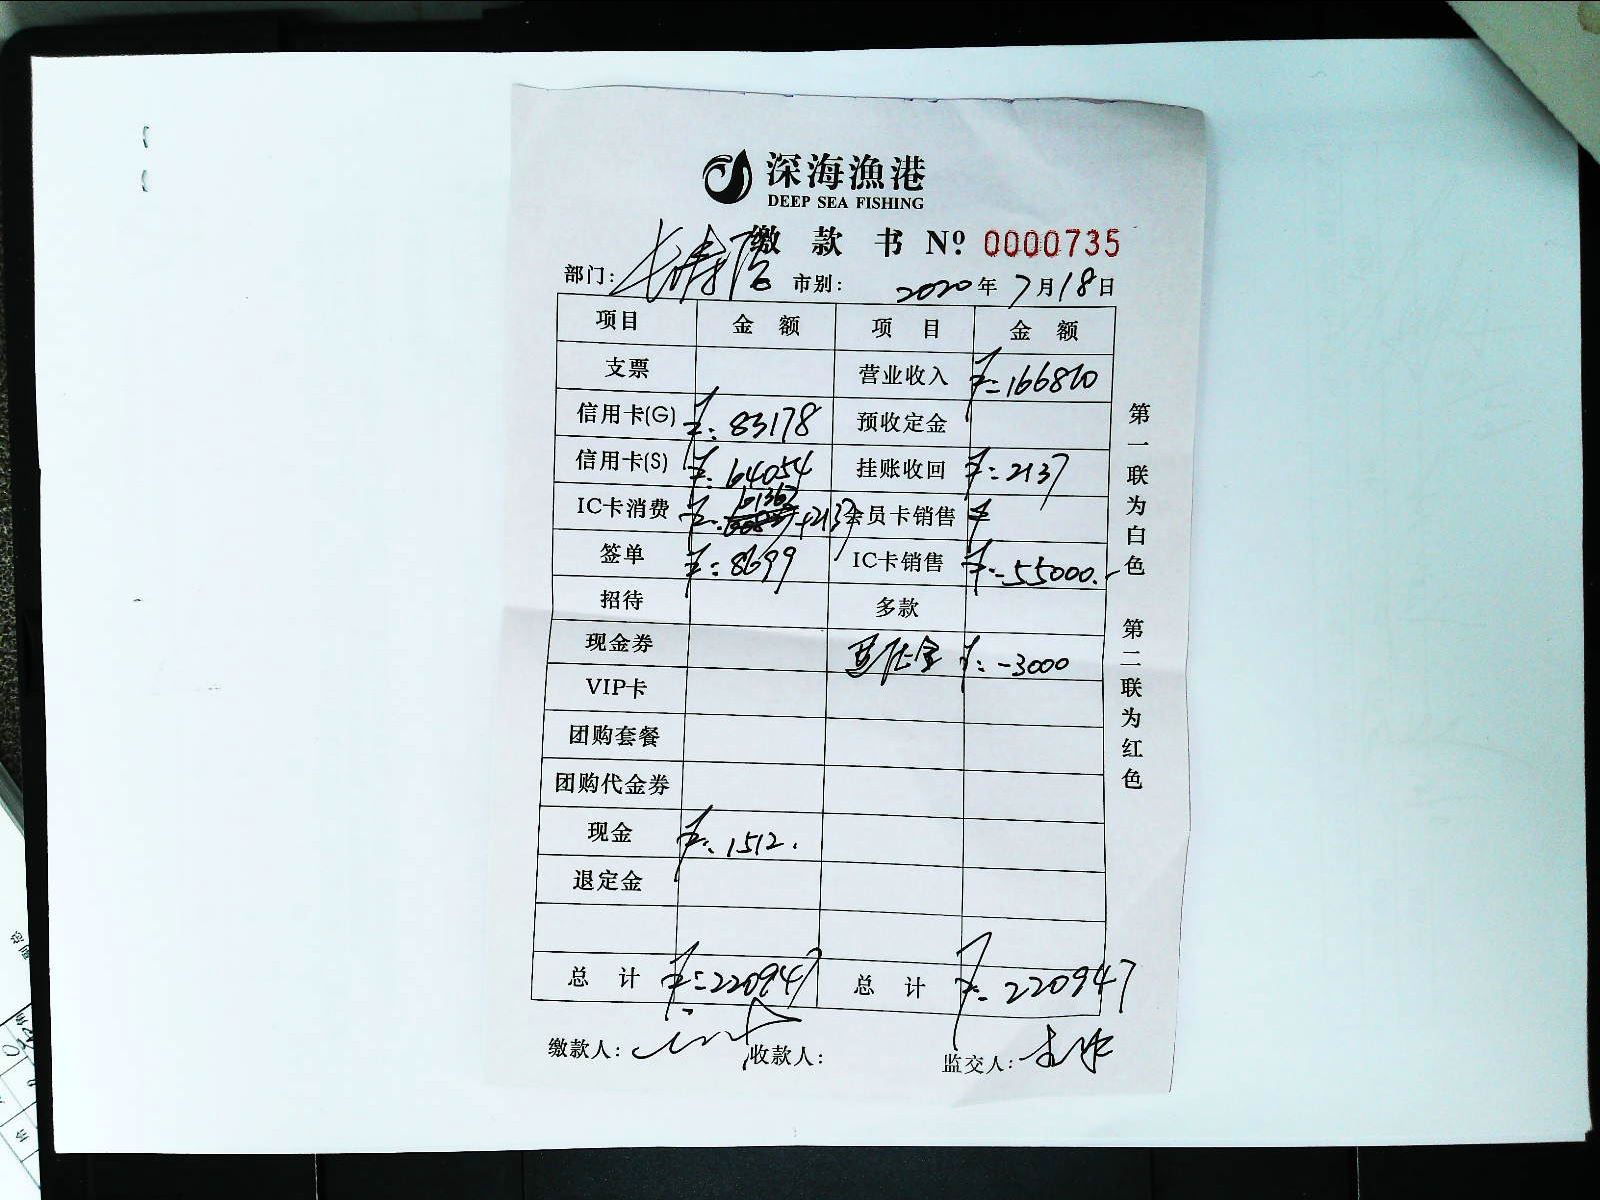 深海漁港
DEEP SEA FISHING
缴款书 Nº 0000735
部门: 长寿店 市别: 2020年7月18日
项目 金额 项目 金额
支票 营业收入 ¥:166810
信用卡(G) ¥:83178 预收定金
信用卡(S) ¥:64054 挂账收回 ¥:2137
IC卡消费 ¥:61367+2137 会员卡销售 ¥
签单 ¥:8699 IC卡销售 ¥:55000.-
招待 多款
现金券 ¥:-3000
VIP卡
团购套餐
团购代金券
现金 ¥:1512.
退定金
总计 ¥:220947 总计 ¥:220947
缴款人: 收款人: 监交人:
第一联为白色 第二联为红色